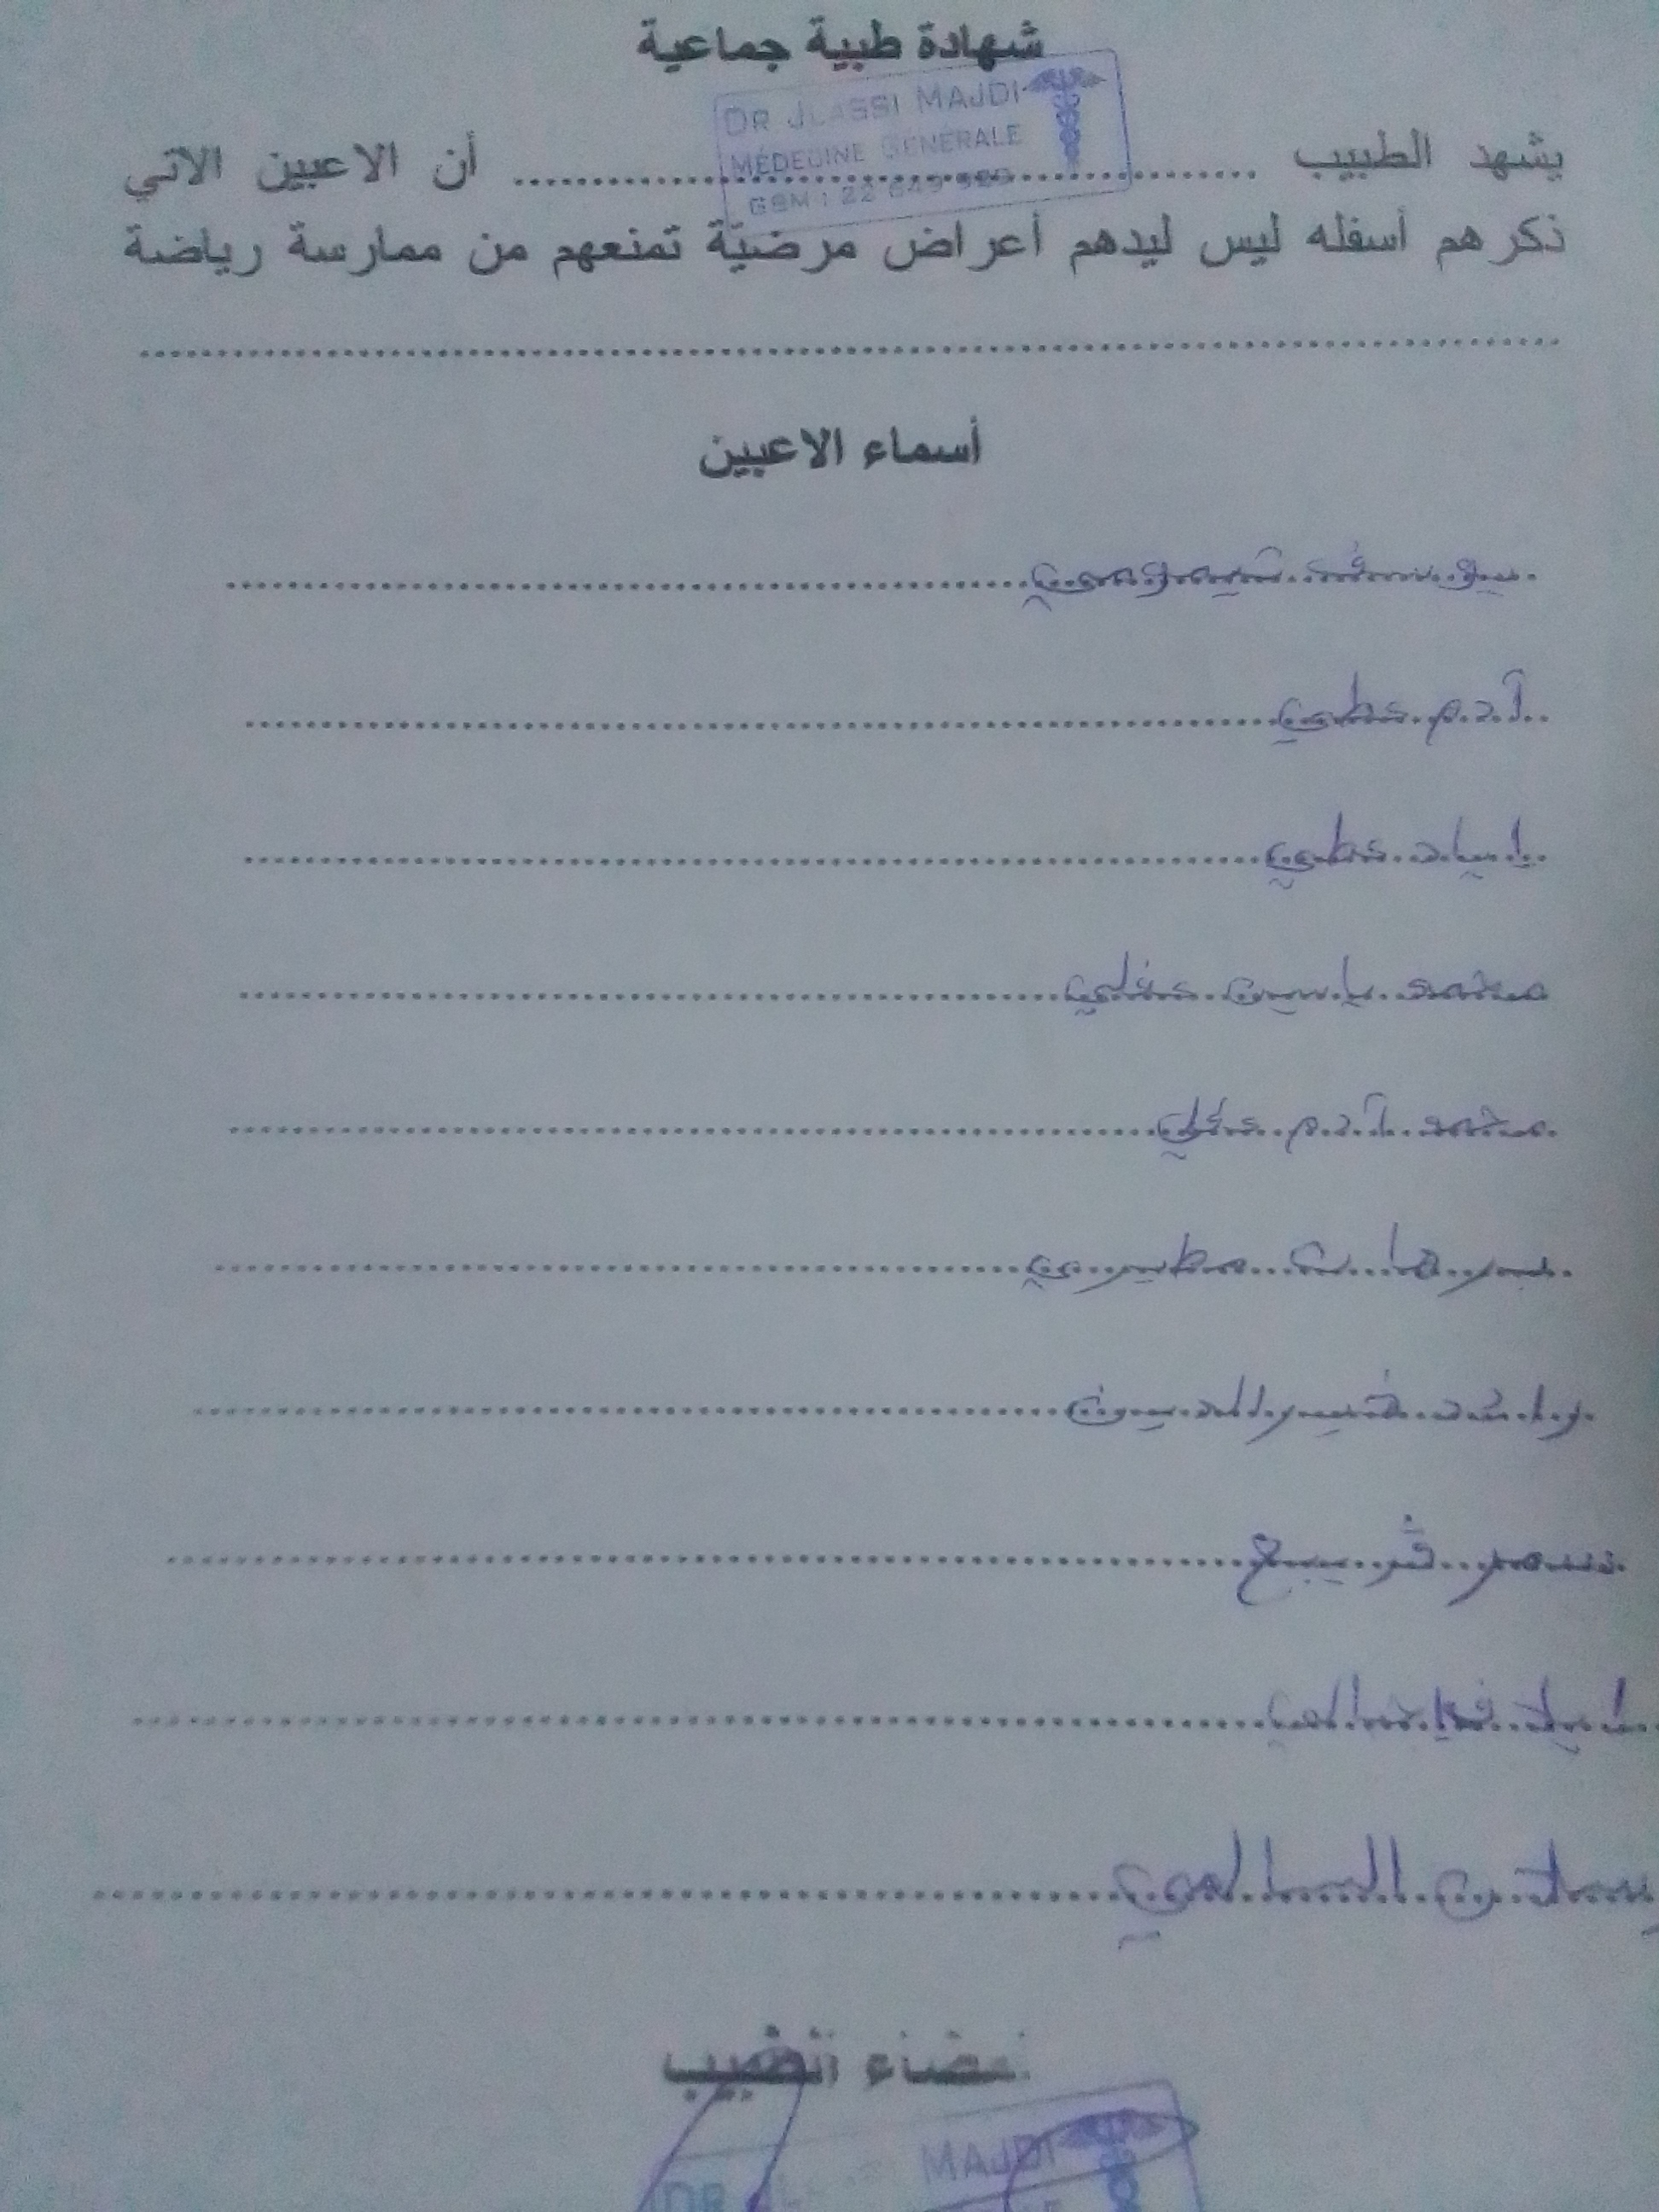 شهادة طبية جماعية
DR JLASSI MAJDI
MÉDECINE GÉNÉRALE
GSM : 22 649
يشهد الطبيب ........................ أن الاعبين الاتي
ذكرهم أسفله ليس ليدهم أعراض مرضيّة تمنعهم من ممارسة رياضة
أسماء الاعبين
يوسف
آدم عطي
إياد عطي
محمد ياسين عفلي
محمد آدم عفلي
برهان مطيري
راشد خير الدين
سمر قريبع
السالمي
إمضاء الطبيب
DR MAJDI